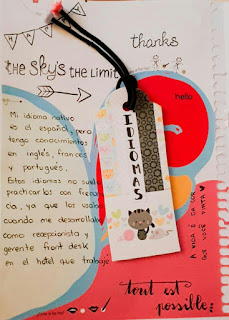 thanks
the sky's the limit
hello
IDIOMAS
Mi idioma nativo
es el español, pero
tengo conocimientos
en inglés, francés
y portugués.
Estos idiomas no suelo
practicarlos con frecuen
cia, ya que los usaba
cuando me desarrollaba
como recepcionista y
gerente front desk
en el hotel que trabajé
A VIDA É DA COR
QUE VOCÊ PINTA
tout est
possible